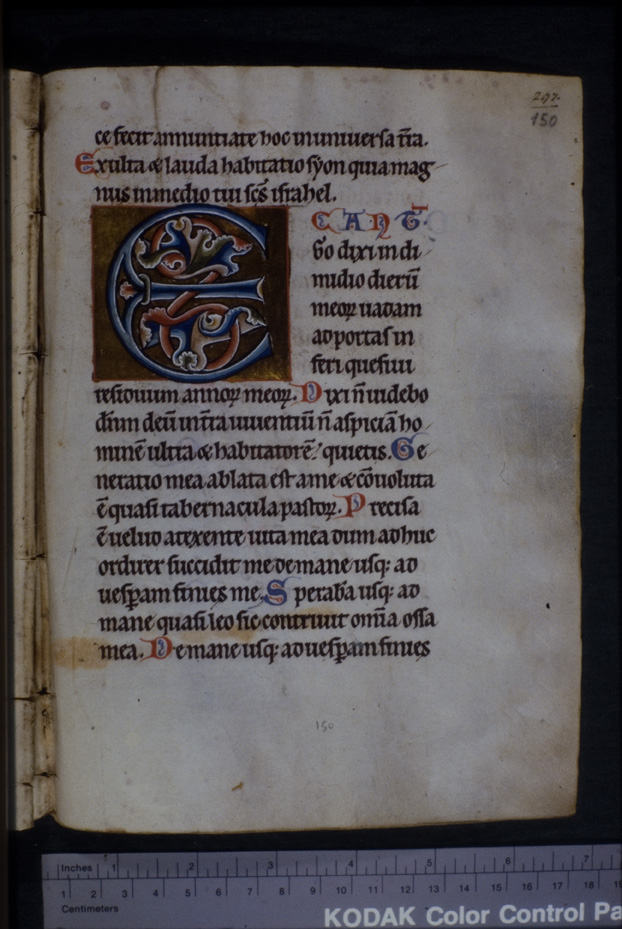 297.
150
ce fecit annuntiate hoc in uniuersa tr̄a.
Exulta & lauda habitatio syon quia mag
nus in medio tui sc̄s israhel.
E CANT̄
Go dixi in di
midio dierū
meoꝝ uadam
ad portas in
feri quesiui
residuum annoꝝ meoꝝ. Dixi n̄ uidebo
dn̄m deū in tr̄a uiuentiū n̄ aspiciā ho
minē ultra & habitatorē quietis. Ge
neratio mea ablata est a me & cōuoluta
ē quasi tabernacula pastoꝝ. Precisa
ē uelud a texente uita mea dum adhuc
ordirer succidit me de mane usq: ad
uesꝑam finies me. Speraba usq: ad
mane quasi leo sic contriuit om̄ia ossa
mea. De mane usq: ad uesꝑam finies
150
Inches 1 2 3 4 5 6 7
1 2 3 4 5 6 7 8 9 10 11 12 13 14 15 16 17 18
Centimeters
KODAK Color Control Pa